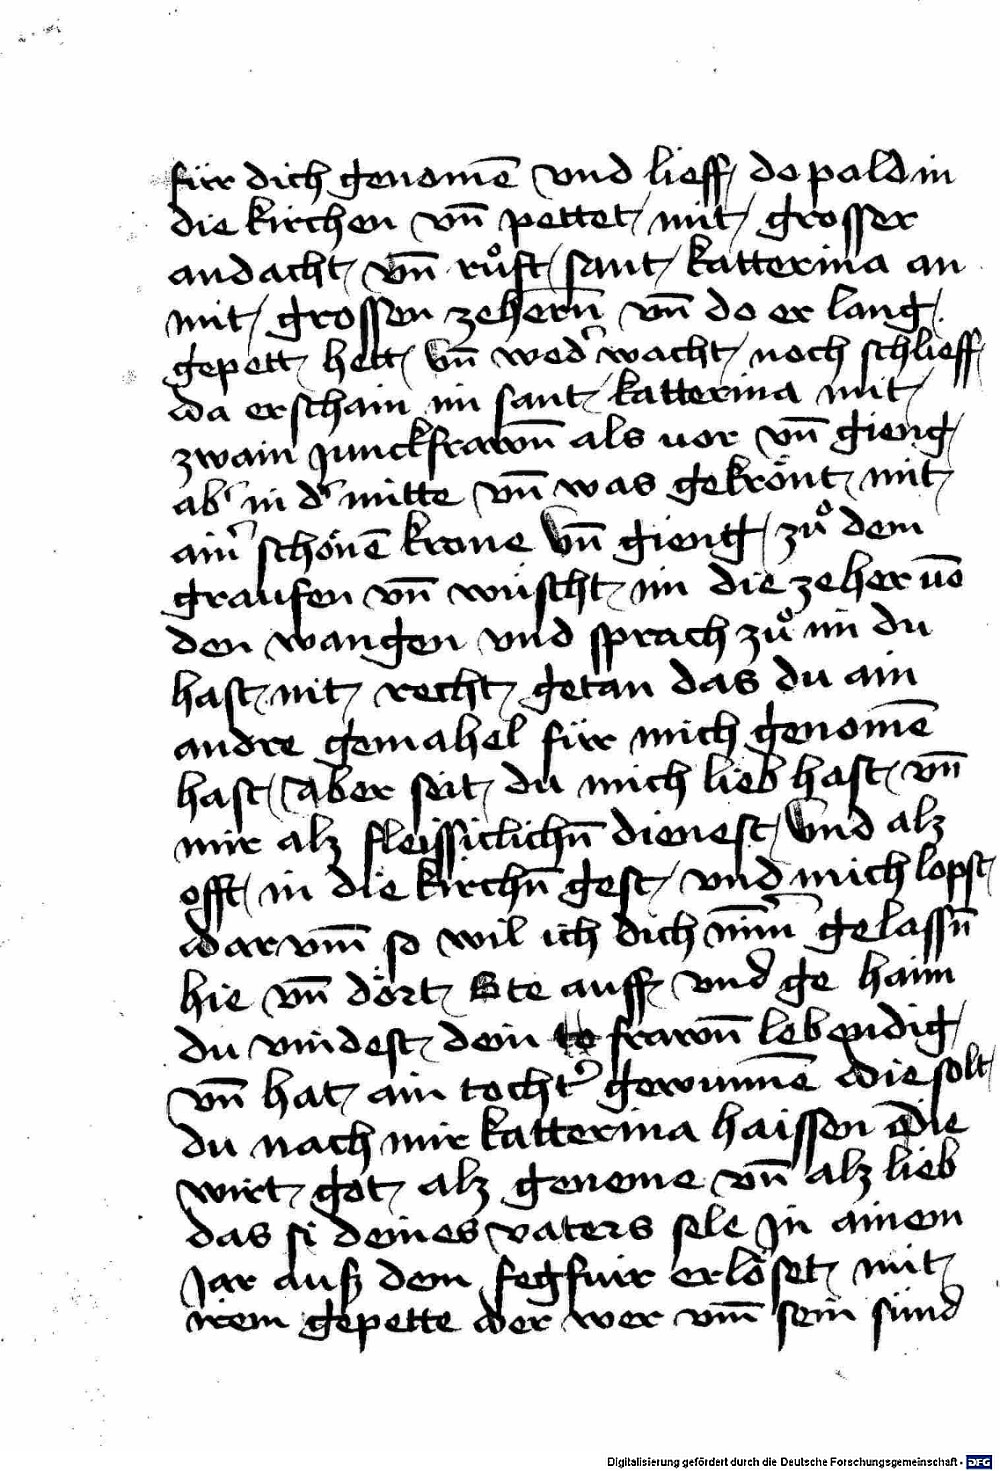 für dich genomē vnd lieff do pald in
die kirchen vn̄ pettet mit grosser
andacht vn̄ růft sant katterina an
mit grossen zehern̄ vn̄ do er lang
gepett hett vn̄ wed' wacht noch schlieff
da erschain im sant katterina mit
zwain junckfrawn̄ als uor vn̄ gieng
ab' in d' mitte vn̄ was gekrönt mit
ain' schönē krone vn̄ gieng zů dem
graufen vn̄ wüscht im die zeher uō
den wangen vnd sprach zů im du
hast nit recht getan das du ain
andre gemahel für mich genomē
hast Aber seit du mich lieb hast vn̄
mir alz fleissiclichn̄ dienest vnd alz
offt in die kirchn̄ gest vnd mich lopst
dar vm̄ so wil ich dich nim̄' gelassn̄
hie vn̄ dört Ste auff vnd ge haim
du vindest dein frawn̄ lebendig
vn̄ hat ain tocht' gewunnē die solt
du nach mir katterina haissen die
wirt got alz geneme vn̄ alz lieb
das si deines vaters sele jn ainem
jar auß dem fegfuir erlöset mit
irem gepette der wer vm̄ sein sünd
Digitalisierung gefördert durch die Deutsche Forschungsgemeinschaft - DFG